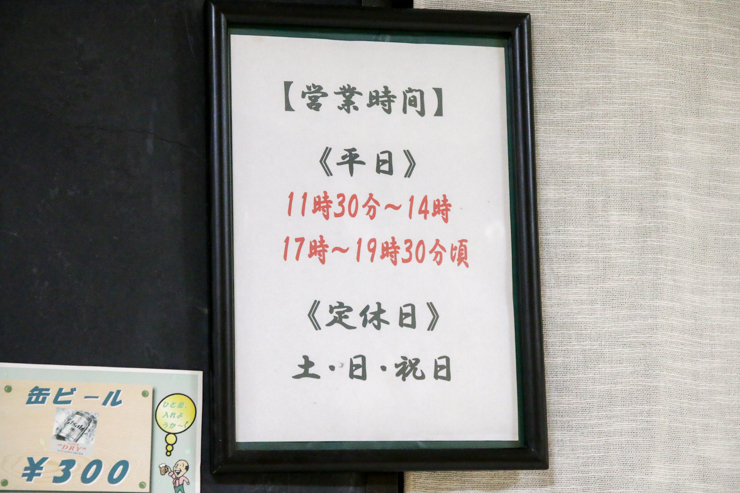 【営業時間】
《平日》
11時30分～14時
17時～19時30分頃
《定休日》
土・日・祝日
缶ビール
DRY
¥300